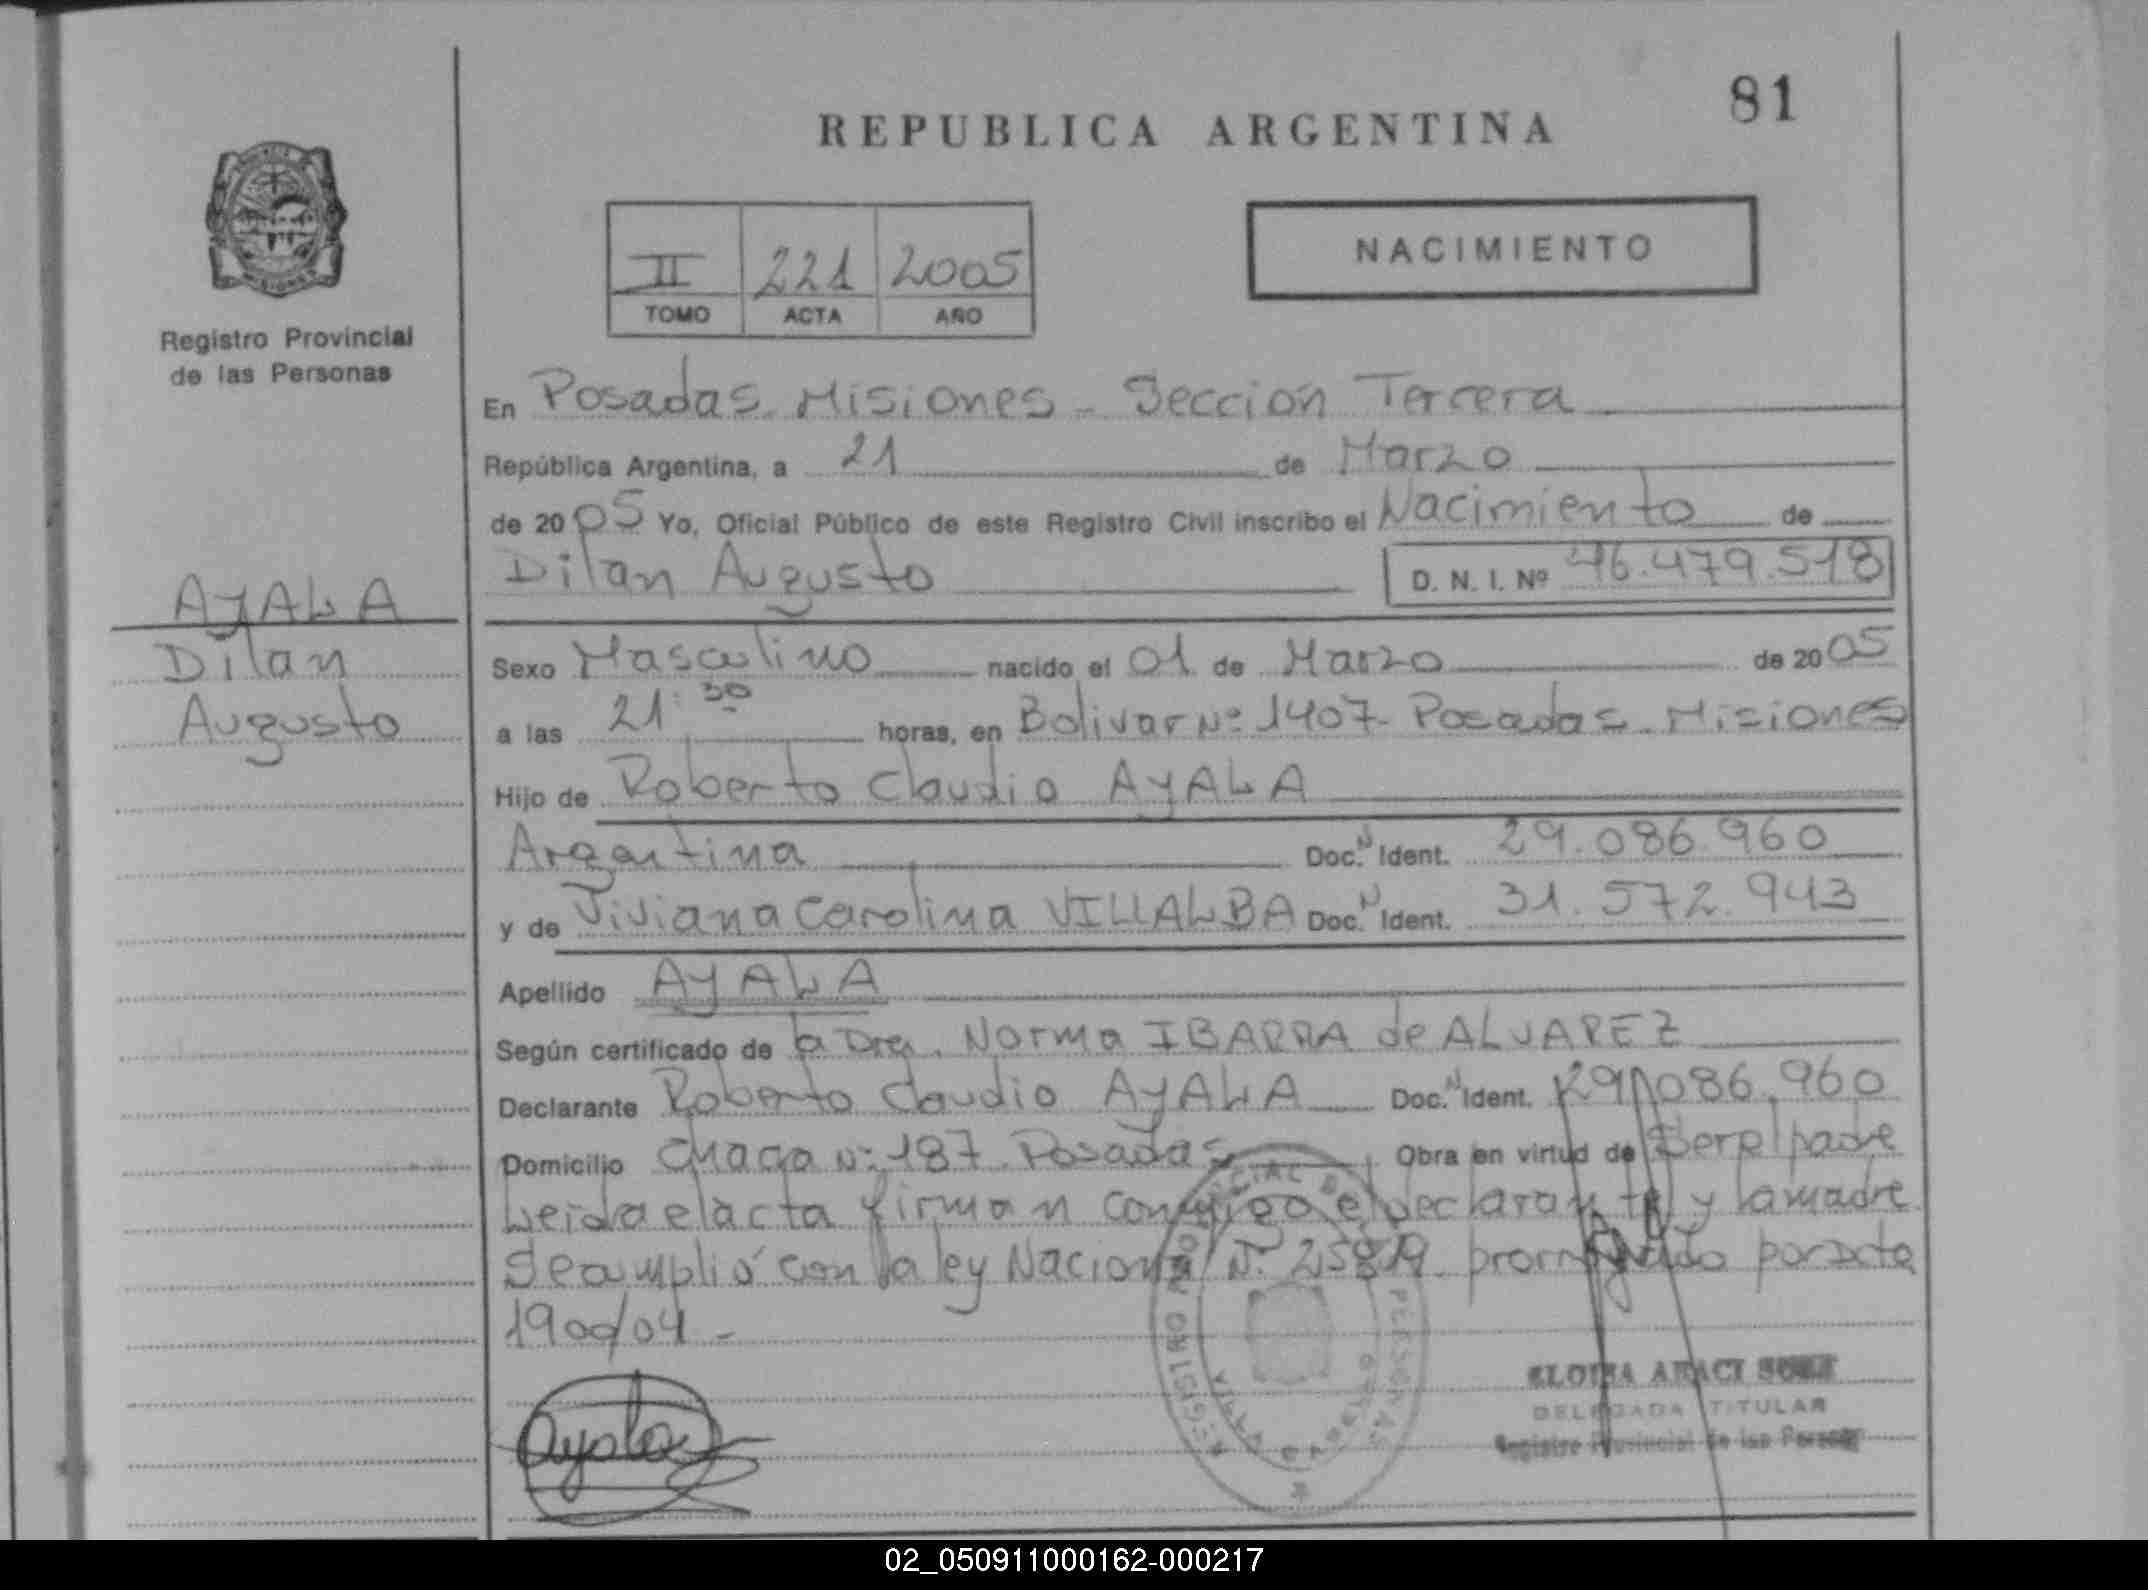 81
REPUBLICA ARGENTINA
II 221 2005
TOMO ACTA AÑO
NACIMIENTO
Registro Provincial
de las Personas
AYALA
Dilan
Augusto
En Posadas. Misiones - Sección Tercera
República Argentina, a 21 de Marzo
de 2005 Yo, Oficial Público de este Registro Civil inscribo el Nacimiento de
Dilan Augusto D. N. I. Nº 46.479.518
Sexo Masculino nacido el 01 de Marzo de 2005
a las 21:30 horas, en Bolivar Nº 1407- Posadas. Misiones
Hijo de Roberto Claudio AYALA
Argentina Doc. N Ident. 29.086.960
y de Viviana Carolina VILLALBA Doc. N Ident. 31.572.943
Apellido AYALA
Según certificado de la Dra. Norma IBARRA de ALVAREZ
Declarante Roberto Claudio AYALA Doc. N Ident. 29.086.960
Domicilio Chaco Nº 187 Posadas Obra en virtud de Ser el padre
Leida el acta firman conmigo el declarante y la madre
Se cumplió con la ley Nacional Nº por Dcto
1900/04 -
Ayala
REGISTRO PROVINCIAL DE LAS PERSONAS
VILLA CABELLO
ARACI
DELEGADA TITULAR
Registro Provincial de las Personas
02_050911000162-000217